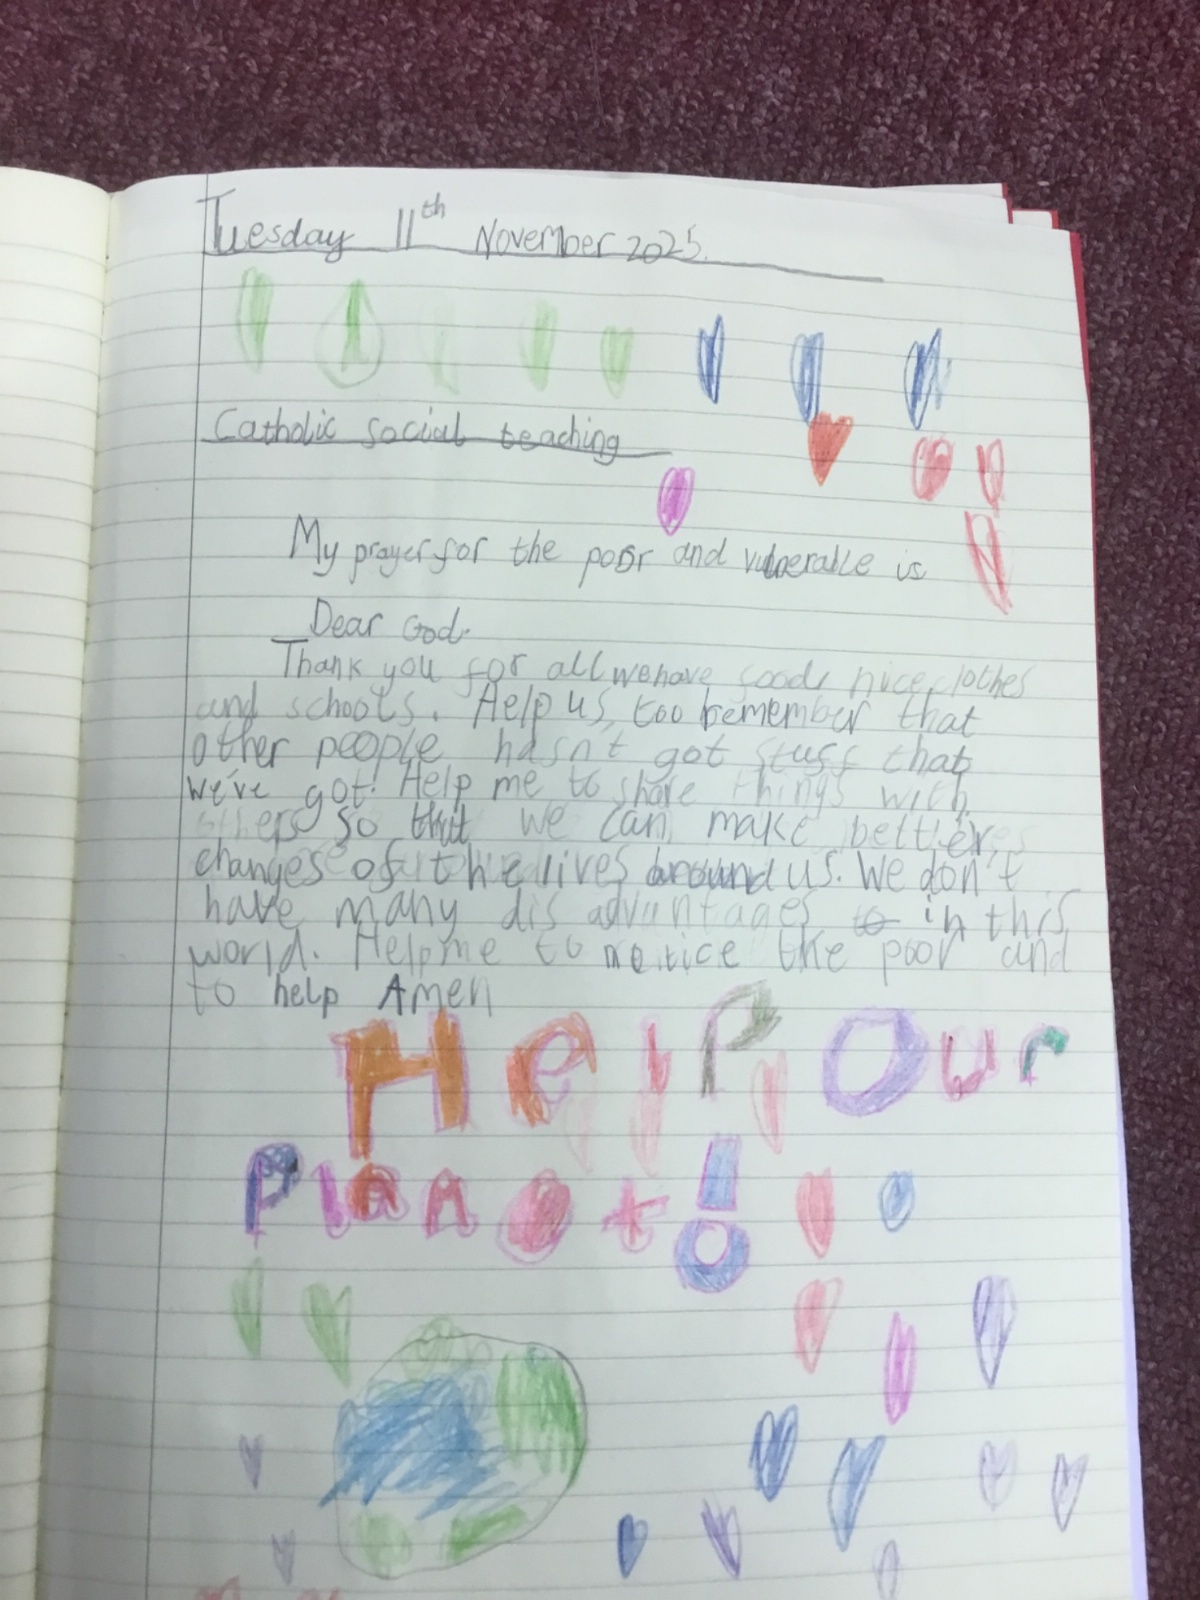 Tuesday 11th November 2025.
Catholic social teaching
My prayer for the poor and vulnerable is
Dear God.
Thank you for all we have food, nice clothes
and schools. Help us, too remember that
other people hasn't got stuff that
we've got! Help me to share things with
others so that we can make better
changes of the lives around us. We don't
have many disadvantages in this
world. Help me to notice the poor and
to help Amen
Help Our
Planet!